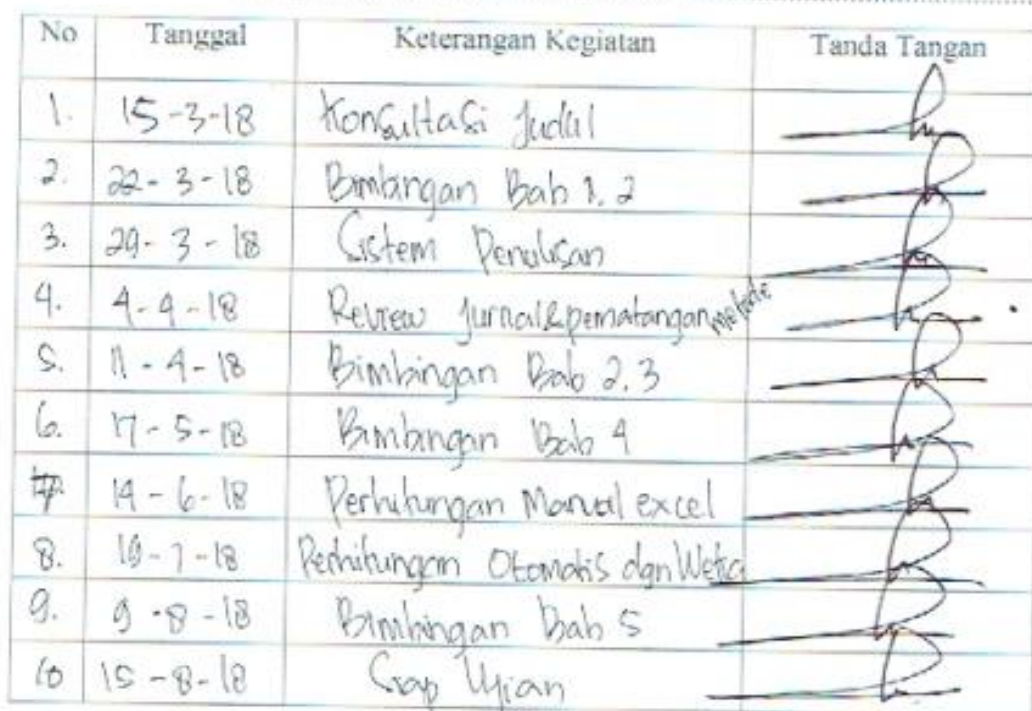 No Tanggal Keterangan Kegiatan Tanda Tangan
1. 15-3-18 Konsultasi Judul
2. 22-3-18 Bimbingan Bab 1.2
3. 29-3-18 Sistem Penulisan
4. 4-4-18 Review jurnal & pematangan metode
5. 11-4-18 Bimbingan Bab 2.3
6. 17-5-18 Bimbingan Bab 4
7. 14-6-18 Perhitungan Manual excel
8. 19-7-18 Perhitungan Otomatis dgn Weka
9. 9-8-18 Bimbingan Bab 5
10 15-8-18 Siap Ujian